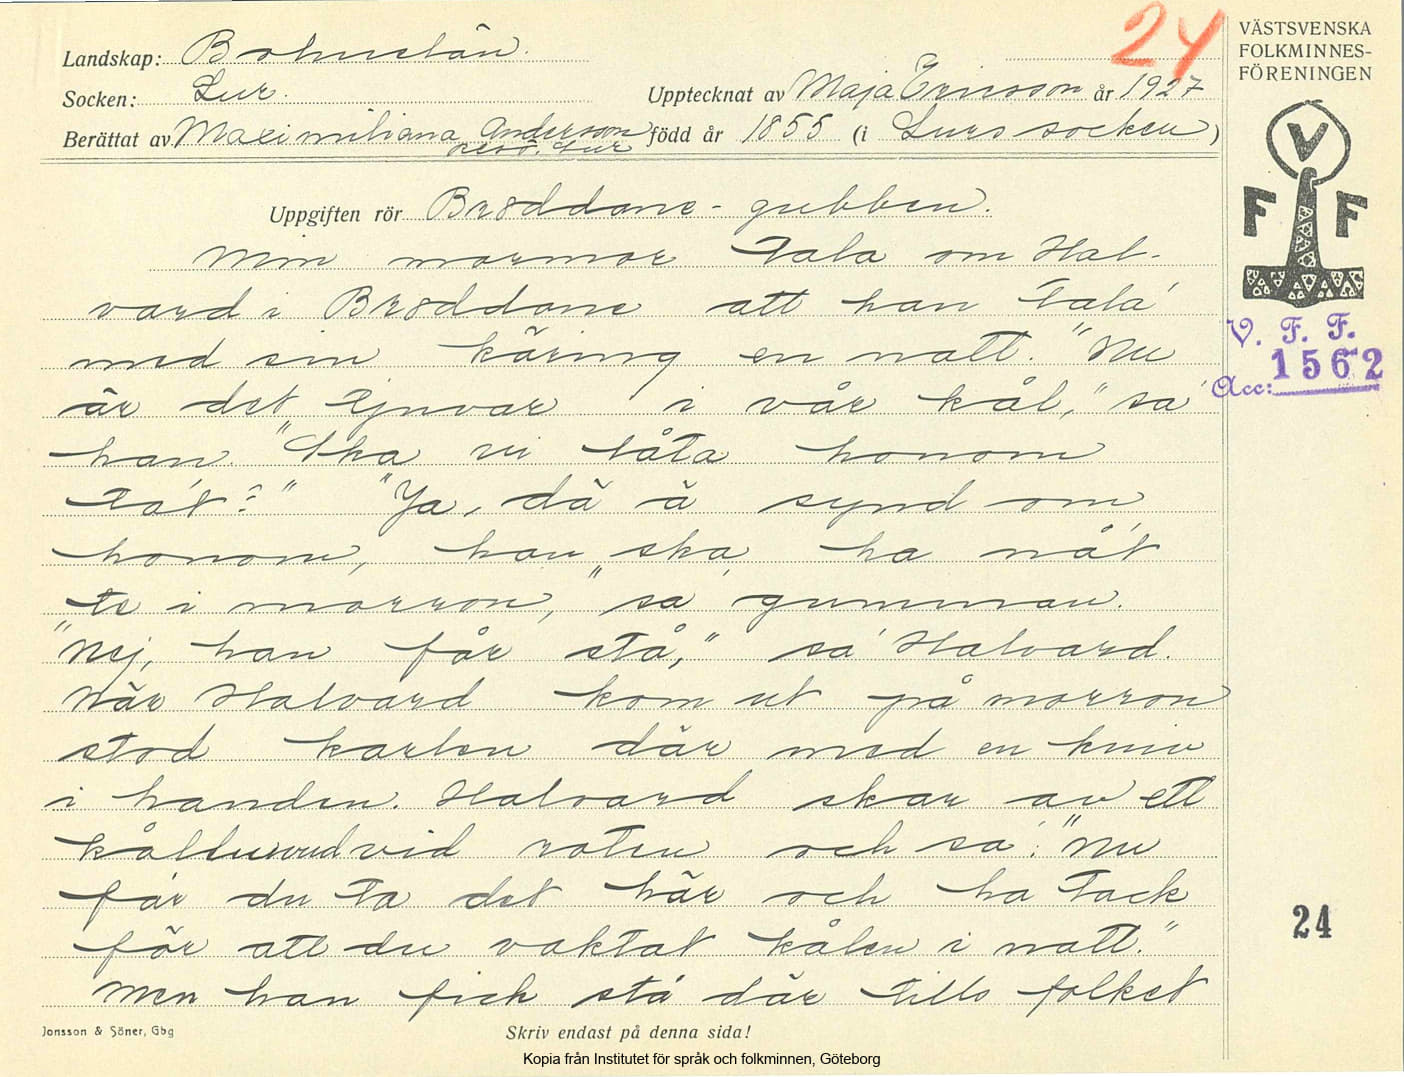 24
Landskap: Bohuslän.
Socken: Lur.
Upptecknat av Maja Ericsson år 1927
Berättat av Maximiliana Anderson född år 1855 (i Lurs socken)
Lur
Uppgiften rör Bröddane-gubben.
Min mormor tala om Hal-
vard i Bröddane att han tala'
med sin käring en natt. "Nu
är det tjuvar i vår kål," sa'
han. "Ska vi låta honom
gå?" "Ja, dä ä synd om
honom, han ska ha nå't
te i morron," sa' gumman.
"Nej, han får stå," sa' Halvard.
När Halvard kom ut på morron
stod karlen där med en kniv
i handen. Halvard skar av ett
kålhuvud vid roten och sa': "Nu
får du ta det här och ha tack
för att du vaktat kålen i natt."
Men han fick stå där tills folket
VÄSTSVENSKA
FOLKMINNES-
FÖRENINGEN
V
F F
V. F. F.
Acc: 1562
24
Jonsson & Söner, Gbg
Skriv endast på denna sida!
Kopia från Institutet för språk och folkminnen, Göteborg